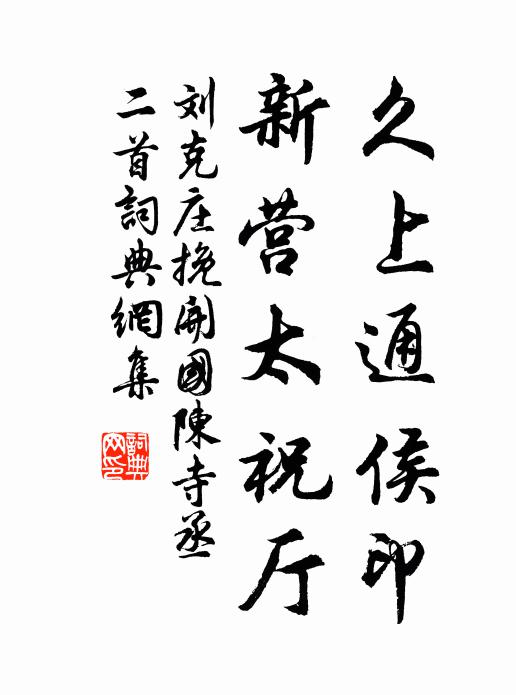 久上通侯印
新营太祝厅
刘克庄挽開國陳寺丞
二首詞典網集
詞典網印